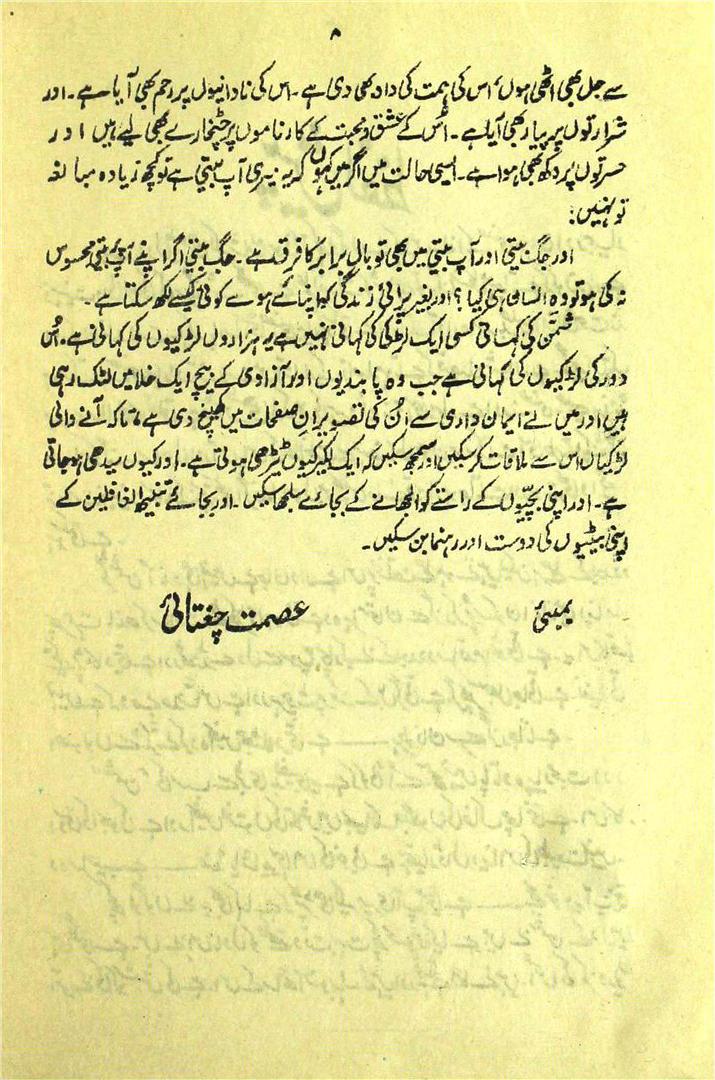 ۸
سے جل بھی اٹھی ہوں، اس کی ہمت کی داد بھی دی ہے۔ اس کی نادانیوں پر رحم بھی آیا ہے۔ اور
شرارتوں پر پیار بھی آیا ہے۔ اُس کے عشق و محبت کے کارناموں پر چٹخارے بھی لیے ہیں اور
حسرتوں پر دکھ بھی ہوا ہے۔ ایسی حالت میں اگر میں کہوں کہ یہ میری آپ بیتی ہے تو کچھ زیادہ مبالغہ
تو نہیں۔
اور جگ بیتی اور آپ بیتی میں بھی تو بال برابر کا فرق ہے۔ جگ بیتی اگر اپنے آپ بیتی محسوس
نہ کی ہو تو وہ انسان ہی کیا؟ اور بغیر پرائی زندگی کو اپنائے ہوے کوئی کیسے لکھ سکتا ہے۔
شمّن کی کہانی کسی ایک لڑکی کی کہانی نہیں ہے یہ ہزاروں لڑکیوں کی کہانی ہے۔ اُس
دور کی لڑکیوں کی کہانی ہے جب وہ پابندیوں اور آزادی کے بیچ ایک خلا میں لٹک رہی
ہیں اور میں نے ایمان داری سے اُن کی تصویر اِن صفحات میں کھینچ دی ہے، تاکہ آنے والی
لڑکیاں اس سے ملاقات کر سکیں اور سمجھ سکیں کہ ایک لکیر کیوں ٹیڑھی ہوتی ہے۔ اور کیوں سیدھی ہو جاتی
ہے۔ اور اپنی بچیّوں کے راستے کو الجھانے کے بجائے سلجھا سکیں۔ اور بجائے تنبیہ الغافلین کے
اپنی بیٹیوں کی دوست اور رہنما بن سکیں۔
بمبئی عصمت چغتائی